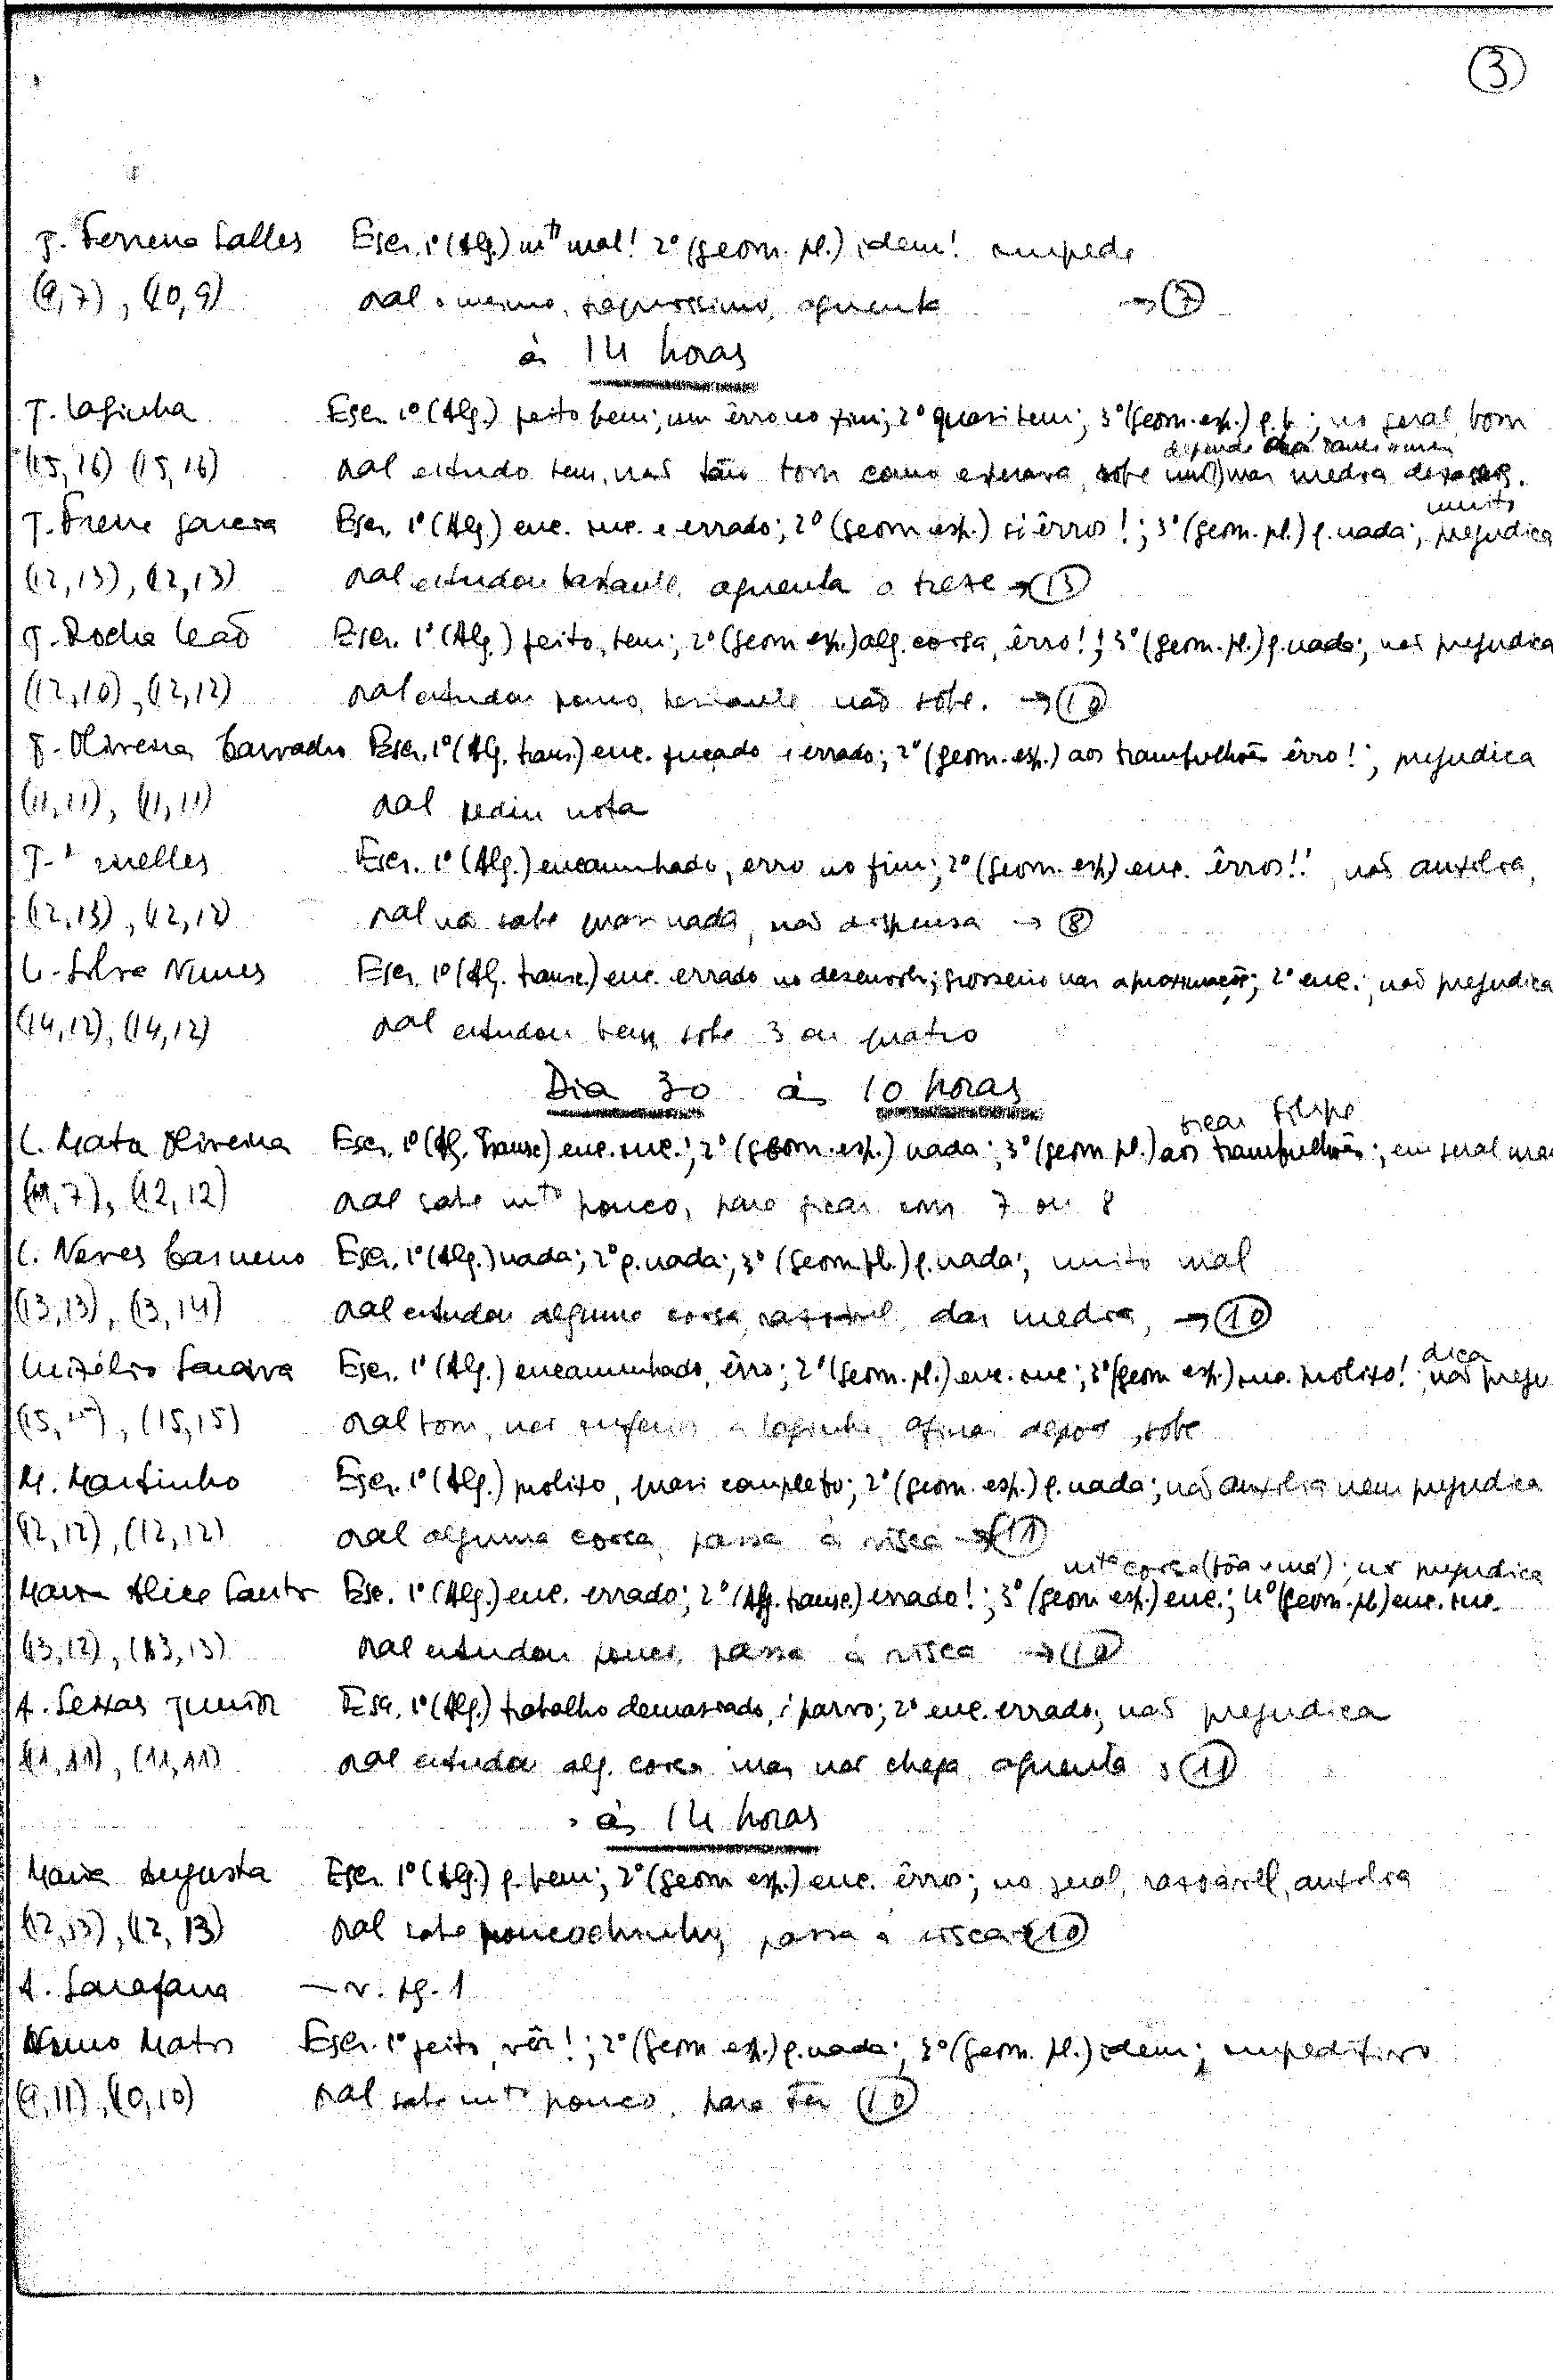 3
Escr. 1º (Alg.) mto mal! 2º (geom. pl.) idem! impede
(9,7), (10,9) oral o mesmo, aguenta → 7
às 14 horas
J. Laginha Escr. 1º (Alg.) feito bem; um êrro no fim; 2º quasi bem; 3º (geom. esp.) q. b.; no geral, bom
(15,16) (15,16) oral estudo bem, não tão bom como esperava, sobe mas media
muito
J. Freire Escr. 1º (Alg) enc. inc. e errado; 2º (geom esp.) êrros!; 3º (geom. pl.) q. nada; prejudica
(12,13), (12,13) oral estudou bastante, aguenta o treze → 13
J. Rocha Leão Escr. 1º (Alg.) feito, bem; 2º (geom esp.) alg. coisa, êrro!; 3º (geom. pl.) q. nada; não prejudica
(12,10), (12,12) oral estudou pouco, não sobe. → 10
J. Oliveira Escr. 1º (Alg. trans.) enc. e errado; 2º (geom. esp.) aos trambulhões êrro!; prejudica
(11,11), (11,11) oral pediu nota
Escr. 1º (Alg.) encaminhado, erro no fim; 2º (geom. esp) enc. êrros!! não auxilia,
(12,13), (12,12) oral não sabe quasi nada, não dispensa → 8
L. Silva Nunes Escr. 1º (Alg. transc.) enc. errado no desenvolv.; grosseiro nas aproximações; 2º enc.; não prejudica
(14,12), (14,12) oral estudou bem, sobe 3 ou quatro
Dia 30 às 10 horas
L. Mata Oliveira Escr. 1º (Alg. Transc) enc. inc.; 2º (geom. esp.) nada; 3º (geom pl.) aos trambulhões; em geral mau
7), (12,12) oral sabe mto pouco, para ficar com 7 ou 8
L. Neves Escr. 1º (Alg.) nada; 2º q. nada; 3º (geom. pl.) q. nada; muito mal
(13,13), (13,14) oral estudou alguma coisa, razoável, dar media, → 10
dica
Escr. 1º (Alg.) encaminhado, êrro; 2º (geom. pl.) enc. inc; 3º (geom esp.) inc. prolixo!; não preju
(15,15), (15,15) oral bom, mas inferior a Laginha, depois, sobe
M. Martinho Escr. 1º (Alg.) prolixo, quasi completo; 2º (geom. esp.) q. nada; não auxilia nem prejudica
(12,12), (12,12) oral alguma coisa, passa à risca → 11
mta coisa (bôa e má); não prejudica
Maria Alice Santos Esc. 1º (Alg.) enc. errado; 2º (Alg. transc.) errado!; 3º (geom esp.) enc.; 4º (geom. pl) enc. inc.
(13,12), (13,13) oral estudou pouco, passa à risca → 10
A. Seixas Junior Esc. 1º (Alg.) trabalho demasiado, parvo; 2º enc. errado; não prejudica
(11,11), (11,11) oral estudou alg. coisa mas não chega, aguenta 11
às 14 horas
Maria Augusta Escr. 1º (Alg.) q. bem; 2º (geom esp.) enc. êrro; no geral, razoável, auxilia
(12,13), (12,13) oral sabe poucochinho, passa à risca → 10
A. Sarafana — v. pg. 1
Nuno Matos Escr. 1º feito, vêr!; 2º (geom esp.) q. nada; 3º (geom. pl.) idem; impeditivo
(9,11), (10,10) oral sabe mto pouco, para têr 10